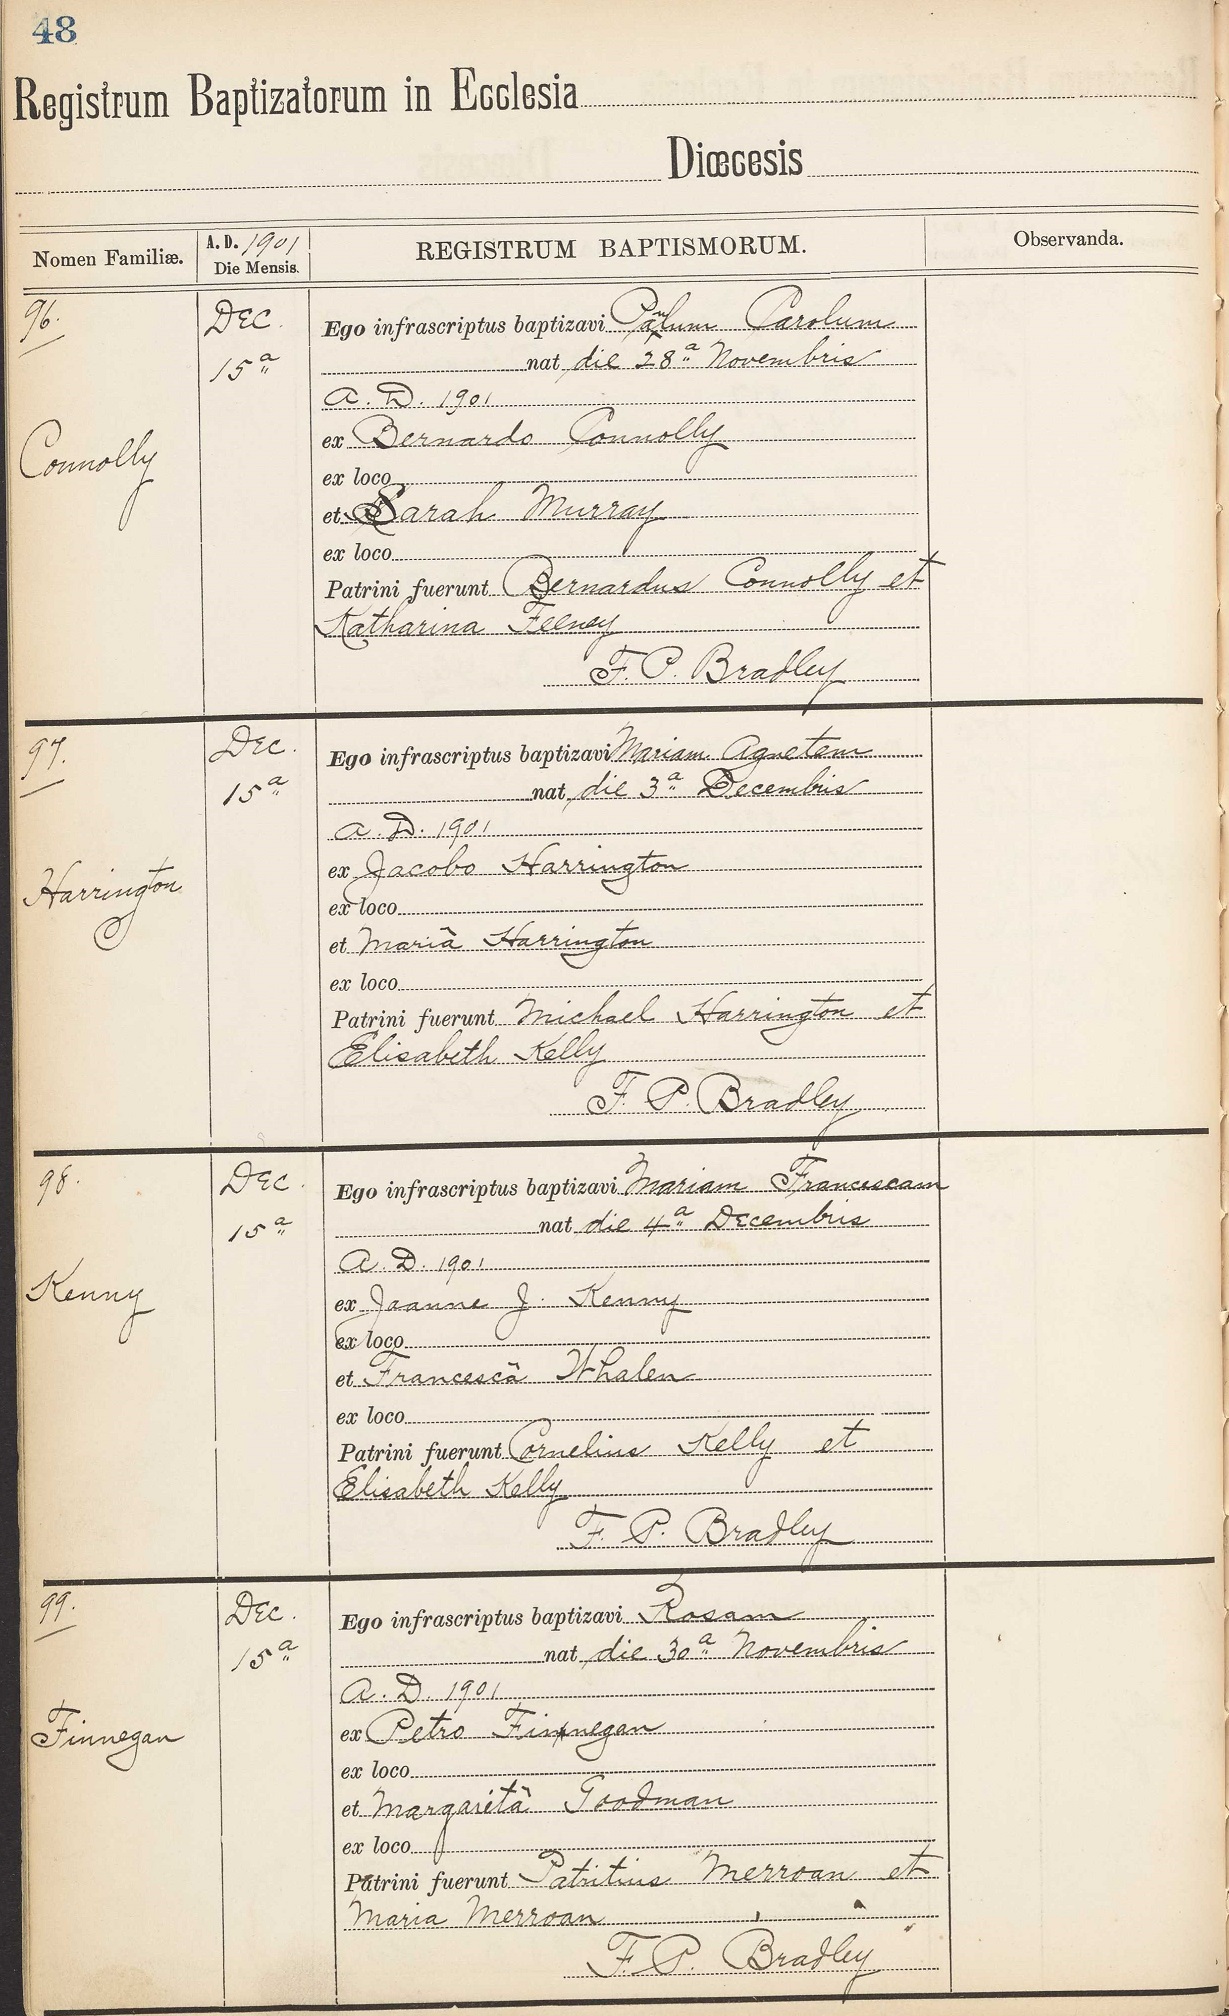 48
Registrum Baptizatorum in Ecclesia
Diœcesis
Nomen Familiæ.
A. D. 1901
Die Mensis.
REGISTRUM BAPTISMORUM.
Observanda.
96.
Connolly
Dec.
15a
Ego infrascriptus baptizavi Paulum Carolum
nat die 28a Novembris
A. D. 1901
ex Bernardo Connolly
ex loco
et Sarah Murray
ex loco
Patrini fuerunt Bernardus Connolly et
Katharina Feeney
F. P. Bradley
97.
Harrington
Dec.
15a
Ego infrascriptus baptizavi Mariam Agnetem
nat die 3a Decembris
A. D. 1901
ex Jacobo Harrington
ex loco
et Mariâ Harrington
ex loco
Patrini fuerunt Michael Harrington et
Elisabeth Kelly
F. P. Bradley
98.
Kenny
Dec.
15a
Ego infrascriptus baptizavi Mariam Francescam
nat die 4a Decembris
A. D. 1901
ex Joanne J. Kenny
ex loco
et Francescâ Whalen
ex loco
Patrini fuerunt Cornelius Kelly et
Elisabeth Kelly
F. P. Bradley
99.
Finnegan
Dec.
15a
Ego infrascriptus baptizavi Rosam
nat die 30a Novembris
A. D. 1901
ex Petro Finnegan
ex loco
et Margaritâ Goodman
ex loco
Patrini fuerunt Patritius Merroan et
Maria Merroan
F. P. Bradley